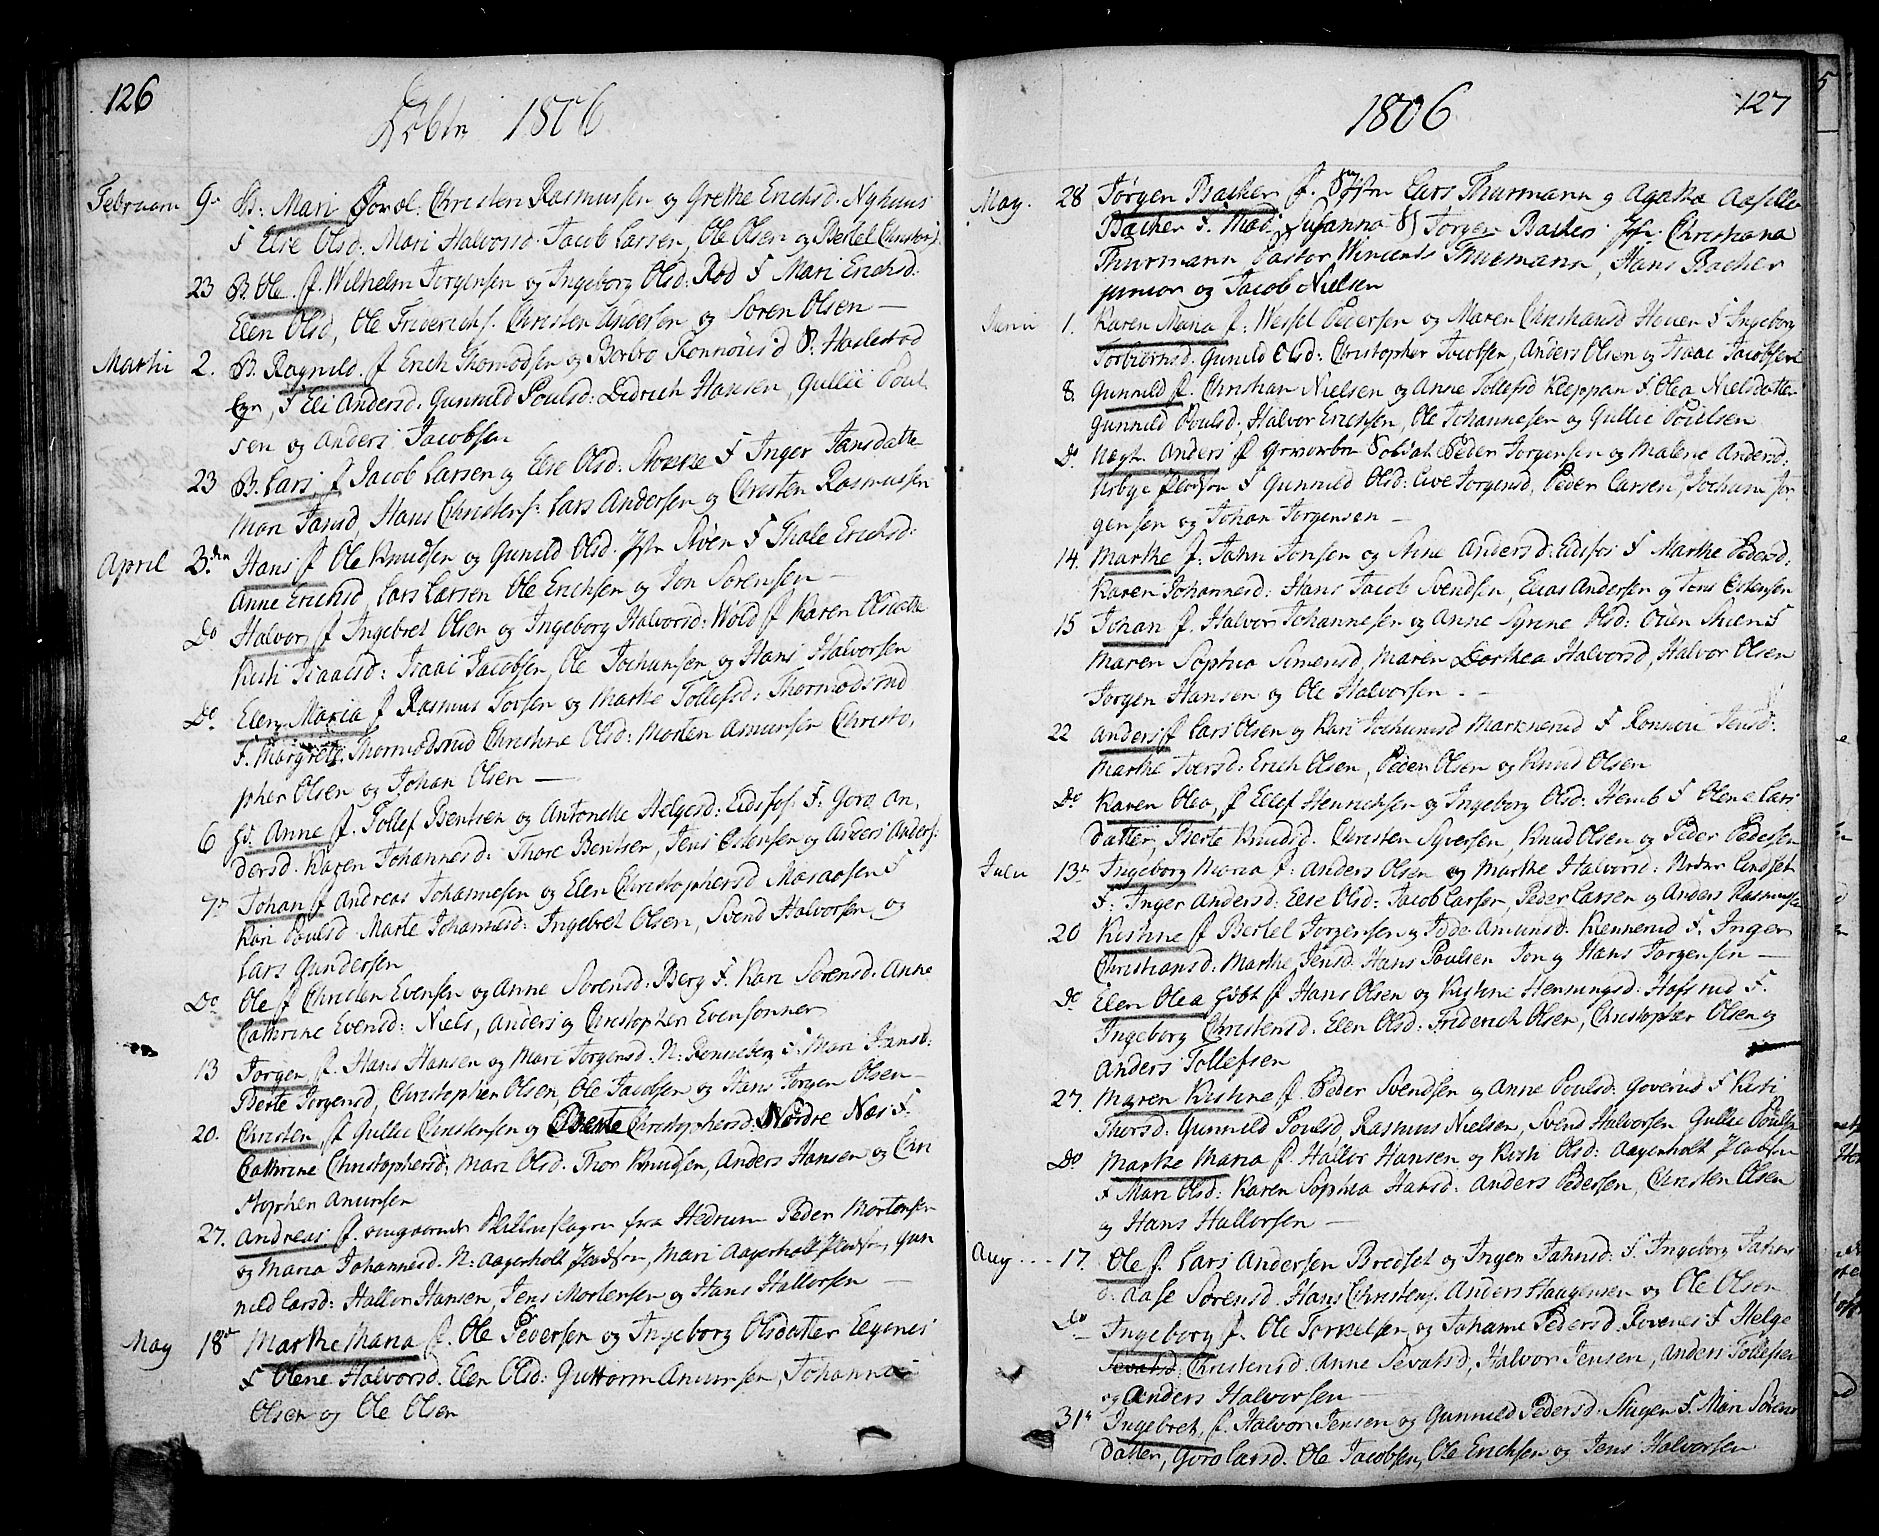 126
Døbte 1806
Februari 9. B. Mari For æl: Christen Rasmussen og Grethe Erichsd. Nyhuus
F Else Olsd. Mari Halvorsd. Jacob Larsen, Ole Olsen og Bertel Christens.
23 B. Ole. f. Wilhelm Jorgensen og Ingeborg Olsd: Rød F Mari Erichsd:
Elen Olsd, Ole Friderichs. Christen Andersen og Soren Olsen —
Martii 2. B. Ragnild. f Erich Thormodsen og Berbro Ronnousd. Haslestad
F Eli Andersd. Gunnild Poulsd: Didrich Hansen, Gullic Poul
sen og Anders Jacobsen
23 B. Lars f Jacob Larsen og Else Olsd: F Inger Jansdatter
Mari Jansd, Hans Christens: Lars Andersen og Christen Rasmussen
April 3. Hans f Ole Knudsen og Gunild Olsd. F Thale Erichsd:
Anne Erichsd Lars Larsen Ole Erichsen og Jon Sorensen —
Do Halvor f Ingebret Olsen og Ingeborg Halvorsd: Wold f Karen Olsdatter
Kisti Isaacsd: Isaac Jacobsen, Ole Jochumsen og Hans Halvorsen
Do. Elen Maria f Rasmus Torsen og Marthe Tollefsd: Thormodsrud
F. Margrete Thormodsrud Christine Olsd: Morten Amunsen Christo,
pher Olsen og Johan Olsen —
6 Anne f. Tollef Bentsen og Antonette Helgesd: Eidsfos. F: Goro An,
dersd. Karen Johannesd: Thore Bentsen, Jens Estensen og Anders Anders:
7. Johan f Andreas Johannesen og Elen Christophersd Moraasen F
Kari Poulsd Marte Johannesd: Ingebret Olsen, Svend Halvorsen og
Lars Gundersen
Do. Ole f Christen Evensen og Anne Sorensd. Berg F. Kari Sorensd. Anne
Cathrine Evensd: Niels, Anders og Christopher Evensønner
13 Jorgen f. Hans Hansen og Mari Jorgensd. N: Ronneberg F: Mari Hansd:
Berte Jorgensd, Christopher Olsen, Ole Jacobsen og Hans Jorgen Olsen —
20. Christen f Gullic Christensen og Berte Christophersd. Nordre Næs F.
Cathrine Christophersd: Mari Olsd. Thor Knudsen, Anders Hansen og Chri
stopher Amunsen
27. Andreas f. omgaaende fra Hedrum Peder Mortensen
og Maria Johannesd. N: Aagerholt, Mari Aagerholt, Gun
nild Larsd: Hallvor Hansen, Jens Mortensen og Hans Hallvorsen —
May 18 Marthe Maria f. Ole Pedersen og Ingeborg Olsdatter Eegenes
F Olene Halvorsd. Elen Olsd: Guttorm Amunsen, Johannes
Olsen og Ole Olsen
1806
127
May. 28 Jorgen Bacher f. Lars Thurmann og Agatha
Bacher F. Mad. Susanna Jorgen Bacher, Christiana
Thurmann Pastor Wincents Thurmann, Hans Bacher
junior og Jacob Nielsen
Junii 1. Karen Maria f: Wessel Pedersen og Maren Christiansd F Ingeborg
Torbiornsd. Gunild Olsd: Christopher Jacobsen, Anders Olsen og Isaac Jacobsen
8. Gunnild f. Christian Nielsen og Anne Tollefsd Kleppan F. Olea Nielsdatter
Gunnild Poulsd, Halvor Erichsen, Ole Johannesen og Gullic Poulsen
Do. Anders f Soldat Peder Jorgensen og Malene Andersd:
F Gunnild Olsd: Jorgensd, Peder Larsen, Jochum Jor
gensen og Johan Jorgensen —
14. Marthe f. Jahn Jonsen og Andersd. Eidsfos F Marthe Pedersd,
Karen Johannesd: Hans Jacob Svendsen, Elias Andersen og Jens Estensen
15 Johan f. Halvor Johannesen og Anne Syrine Olsd: F
Maren Sophia Simensd, Maren Dorthea Halvorsd, Halvor Olsen
Jorgen Hansen og Ole Halvorsen —
22 Anders f Lars Olsen og Kari Jochumsd F Ronnou Jensd:
Marthe Iversd: Erich Olsen, Peder Olsen og Knud Olsen
Do Karen Olea, f Ellef Henrichsen og Ingeborg Olsd: F Olene Lars
datter, Berte Knudsd. Christen Syversen, Knud Olsen og Peder Pedersen
Julii 13. Ingeborg Maria f: Anders Olsen og Marthe Halvorsd:
F: Inger Andersd: Else Olsd: Jacob Larsen, Peder Larsen og Anders Rasmussen
20 Kistine f Bertel Jorgensen og Amunsd. Kiennerud F. Inger
Christiansd: Marthe Jensd. Hans Poulsen Jon og Hans Jorgensen —
Do Elen Olea f Hans Olsen og Kistine Henningsd: Hofsrud F.
Ingeborg Christensd: Elen Olsd: Friderich Olsen, Christopher Olsen og
Anders Tollefsen
27. Maren Kistine f Peder Svendsen og Anne Poulsd: Goverud F Kisti
Thorsd: Gunnild Poulsd, Rasmus Nielsen, Svend Halvorsen Gullic Poulsen
Do Marthe Maria f Hallvor Hansen og Kisti Olsd: Aagerholt
F Mari Olsd: Karen Sophia Hansd: Anders Pedersen, Christen Olsen
og Hans Hallvorsen —
Aug... 17. Ole f. Lars Andersen Bredset og Ingen Jahnsd: F. Ingeborg Jahns
d: Aase Sorensd. Hans Christens. Anders Haagensen og Ole Olsen
do Ingeborg f. Ole Torkelsen og Johanne Pedersd. F Helge
Christensd. Anne Sevatsd, Halvor Jensen, Anders Tollefsen
og Anders Halvorsen —
31 Ingebret, f. Halvor Jensen og Gunnild Pedersd. F. Mari Sorens
datter, Goro Larsd. Ole Jacobsen, Ole Erichsen og Jens Halvorsen